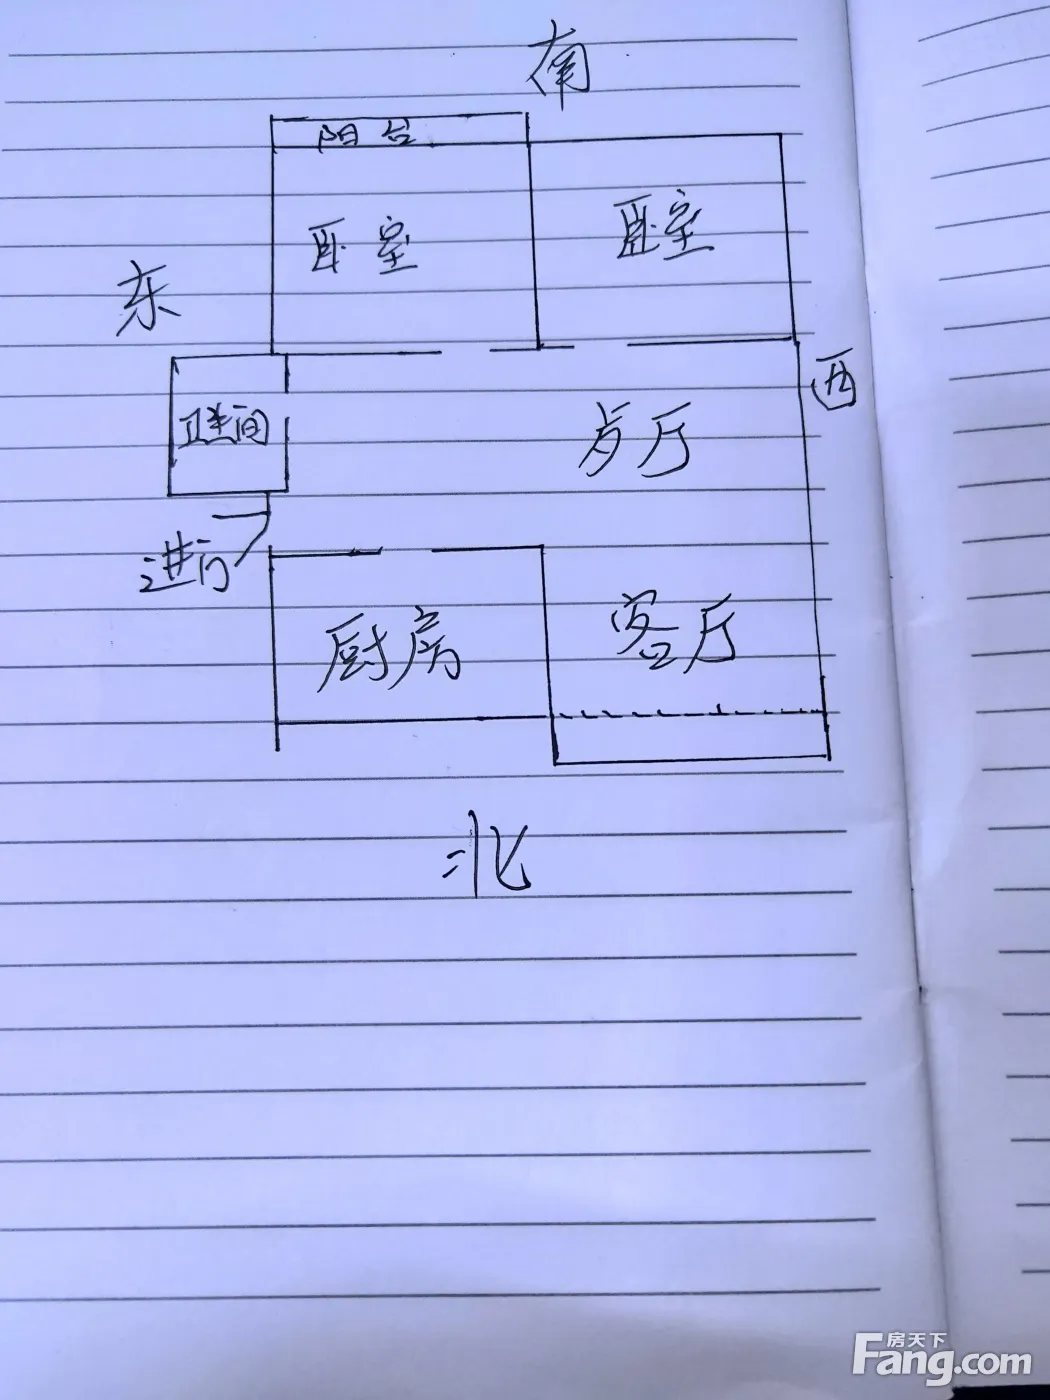 南
阳台
卧室
卧室
东
西
卫生间
歺厅
进门
厨房
客厅
北
房天下
Fang.com